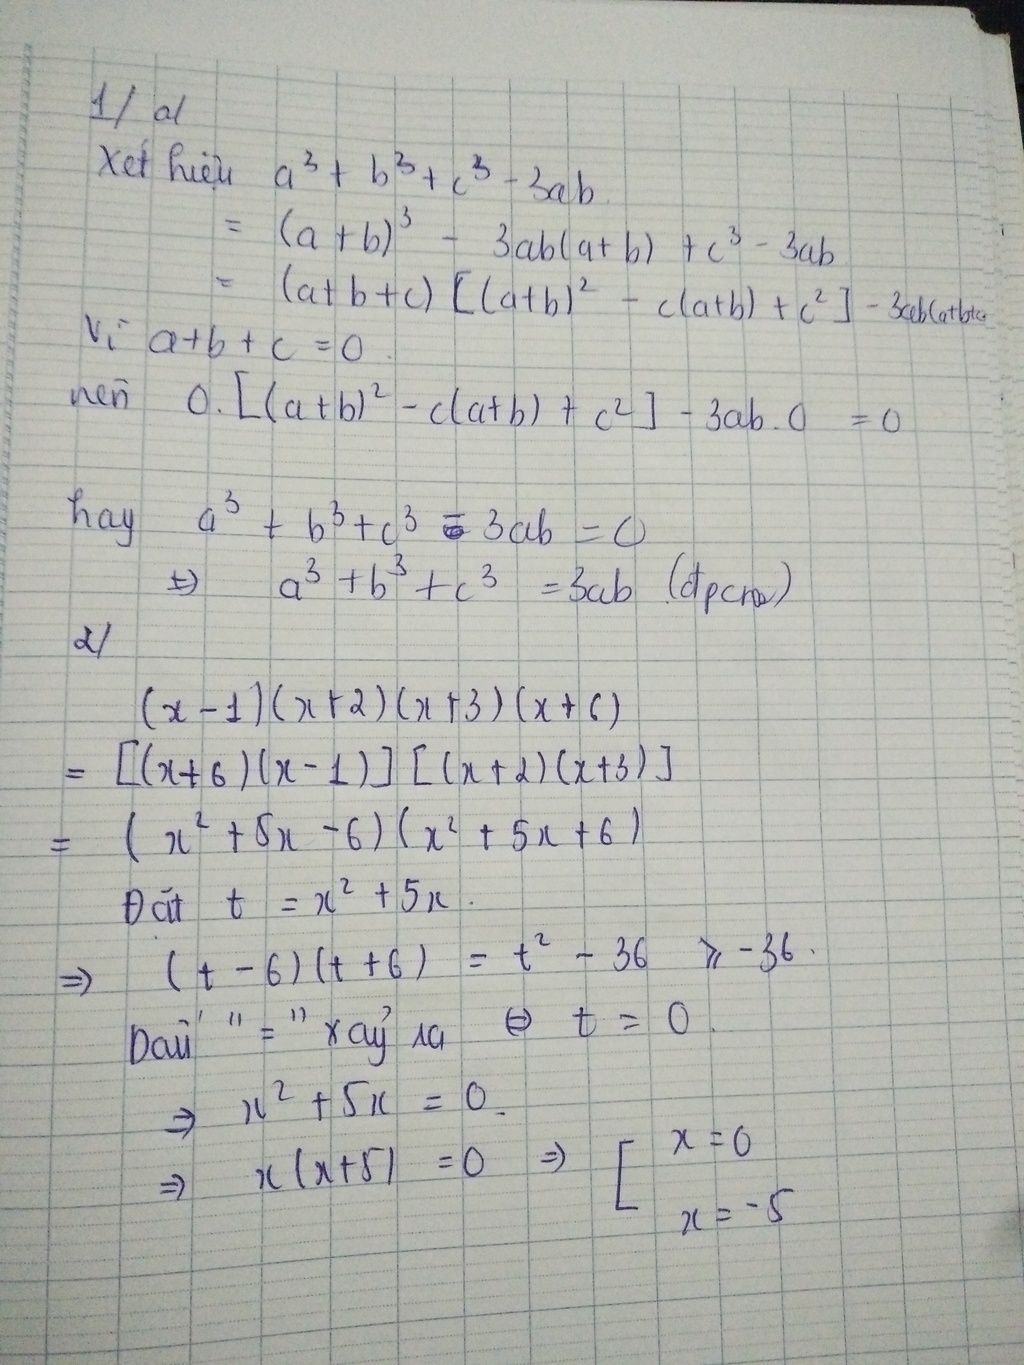 1/ a/
Xét hiệu a³ + b³ + c³ - 3ab
= (a+b)³ - 3ab(a+b) + c³ - 3ab
= (a+b+c) [(a+b)² - c(a+b) + c²] - 3ab(a+b+c
Vì a+b+c = 0.
nên 0.[(a+b)² - c(a+b) + c²] - 3ab.0 = 0
hay a³ + b³ + c³ - 3ab = 0
⇔ a³ + b³ + c³ = 3ab (đpcm)
2/
(x-1)(x+2)(x+3)(x+6)
= [(x+6)(x-1)] [(x+2)(x+3)]
= (x² + 5x - 6)(x² + 5x + 6)
Đặt t = x² + 5x.
⇒ (t-6)(t+6) = t² - 36 ⩾ -36.
Dấu "=" xảy ra ⇔ t = 0.
⇒ x² + 5x = 0.
⇒ x(x+5) = 0 ⇒ [ x = 0
x = -5